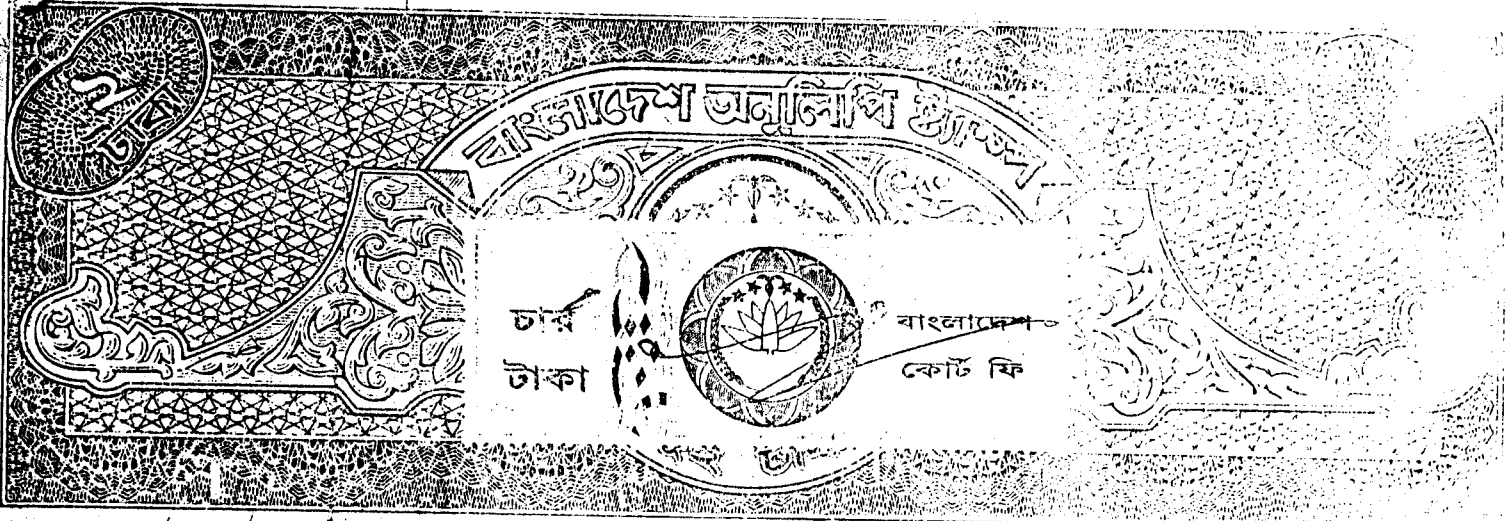 ২
টাকা
বাংলাদেশ অনুলিপি ষ্ট্যাম্প
চার
টাকা
বাংলাদেশ
কোর্ট ফি